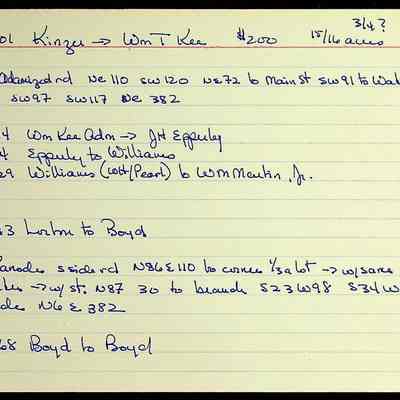 3/4?
01 Kinzer → Wm T Kee $200 15/16 acres
Macadamized rd NE 110 SW 120 NE 72 to Main St SW 91 to
SW 97 SW 117 NE 382
4 Wm Kee Adm → JH Epperly
4 Epperly to Williams
29 Williams (WH/Pearl) to Wm Martin, Jr.
3 Linton to Boyd
S side rd N86E110 to corner 1/3 a lot →
→ w/ st. N87 30 to branch S23W98 S34W
N6E 382
68 Boyd to Boyd